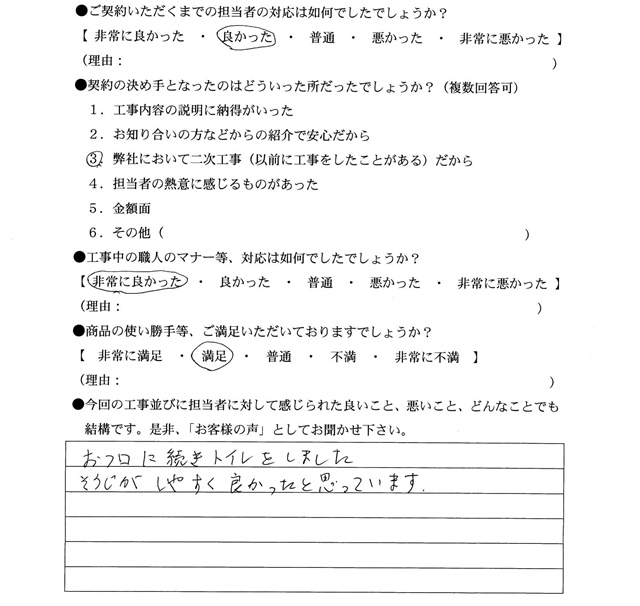 ●ご契約いただくまでの担当者の対応は如何でしたでしょうか？
【 非常に良かった ・ 良かった ・ 普通 ・ 悪かった ・ 非常に悪かった 】
(理由： )
●契約の決め手となったのはどういった所だったでしょうか？（複数回答可）
１．工事内容の説明に納得がいった
２．お知り合いの方などからの紹介で安心だから
３．弊社において二次工事（以前に工事をしたことがある）だから
４．担当者の熱意に感じるものがあった
５．金額面
６．その他（ ）
●工事中の職人のマナー等、対応は如何でしたでしょうか？
【 非常に良かった ・ 良かった ・ 普通 ・ 悪かった ・ 非常に悪かった 】
(理由： )
●商品の使い勝手等、ご満足いただいておりますでしょうか？
【 非常に満足 ・ 満足 ・ 普通 ・ 不満 ・ 非常に不満 】
(理由： )
●今回の工事並びに担当者に対して感じられた良いこと、悪いこと、どんなことでも
結構です。是非、「お客様の声」としてお聞かせ下さい。
おフロに続きトイレをしました
そうじがしやすく良かったと思っています.